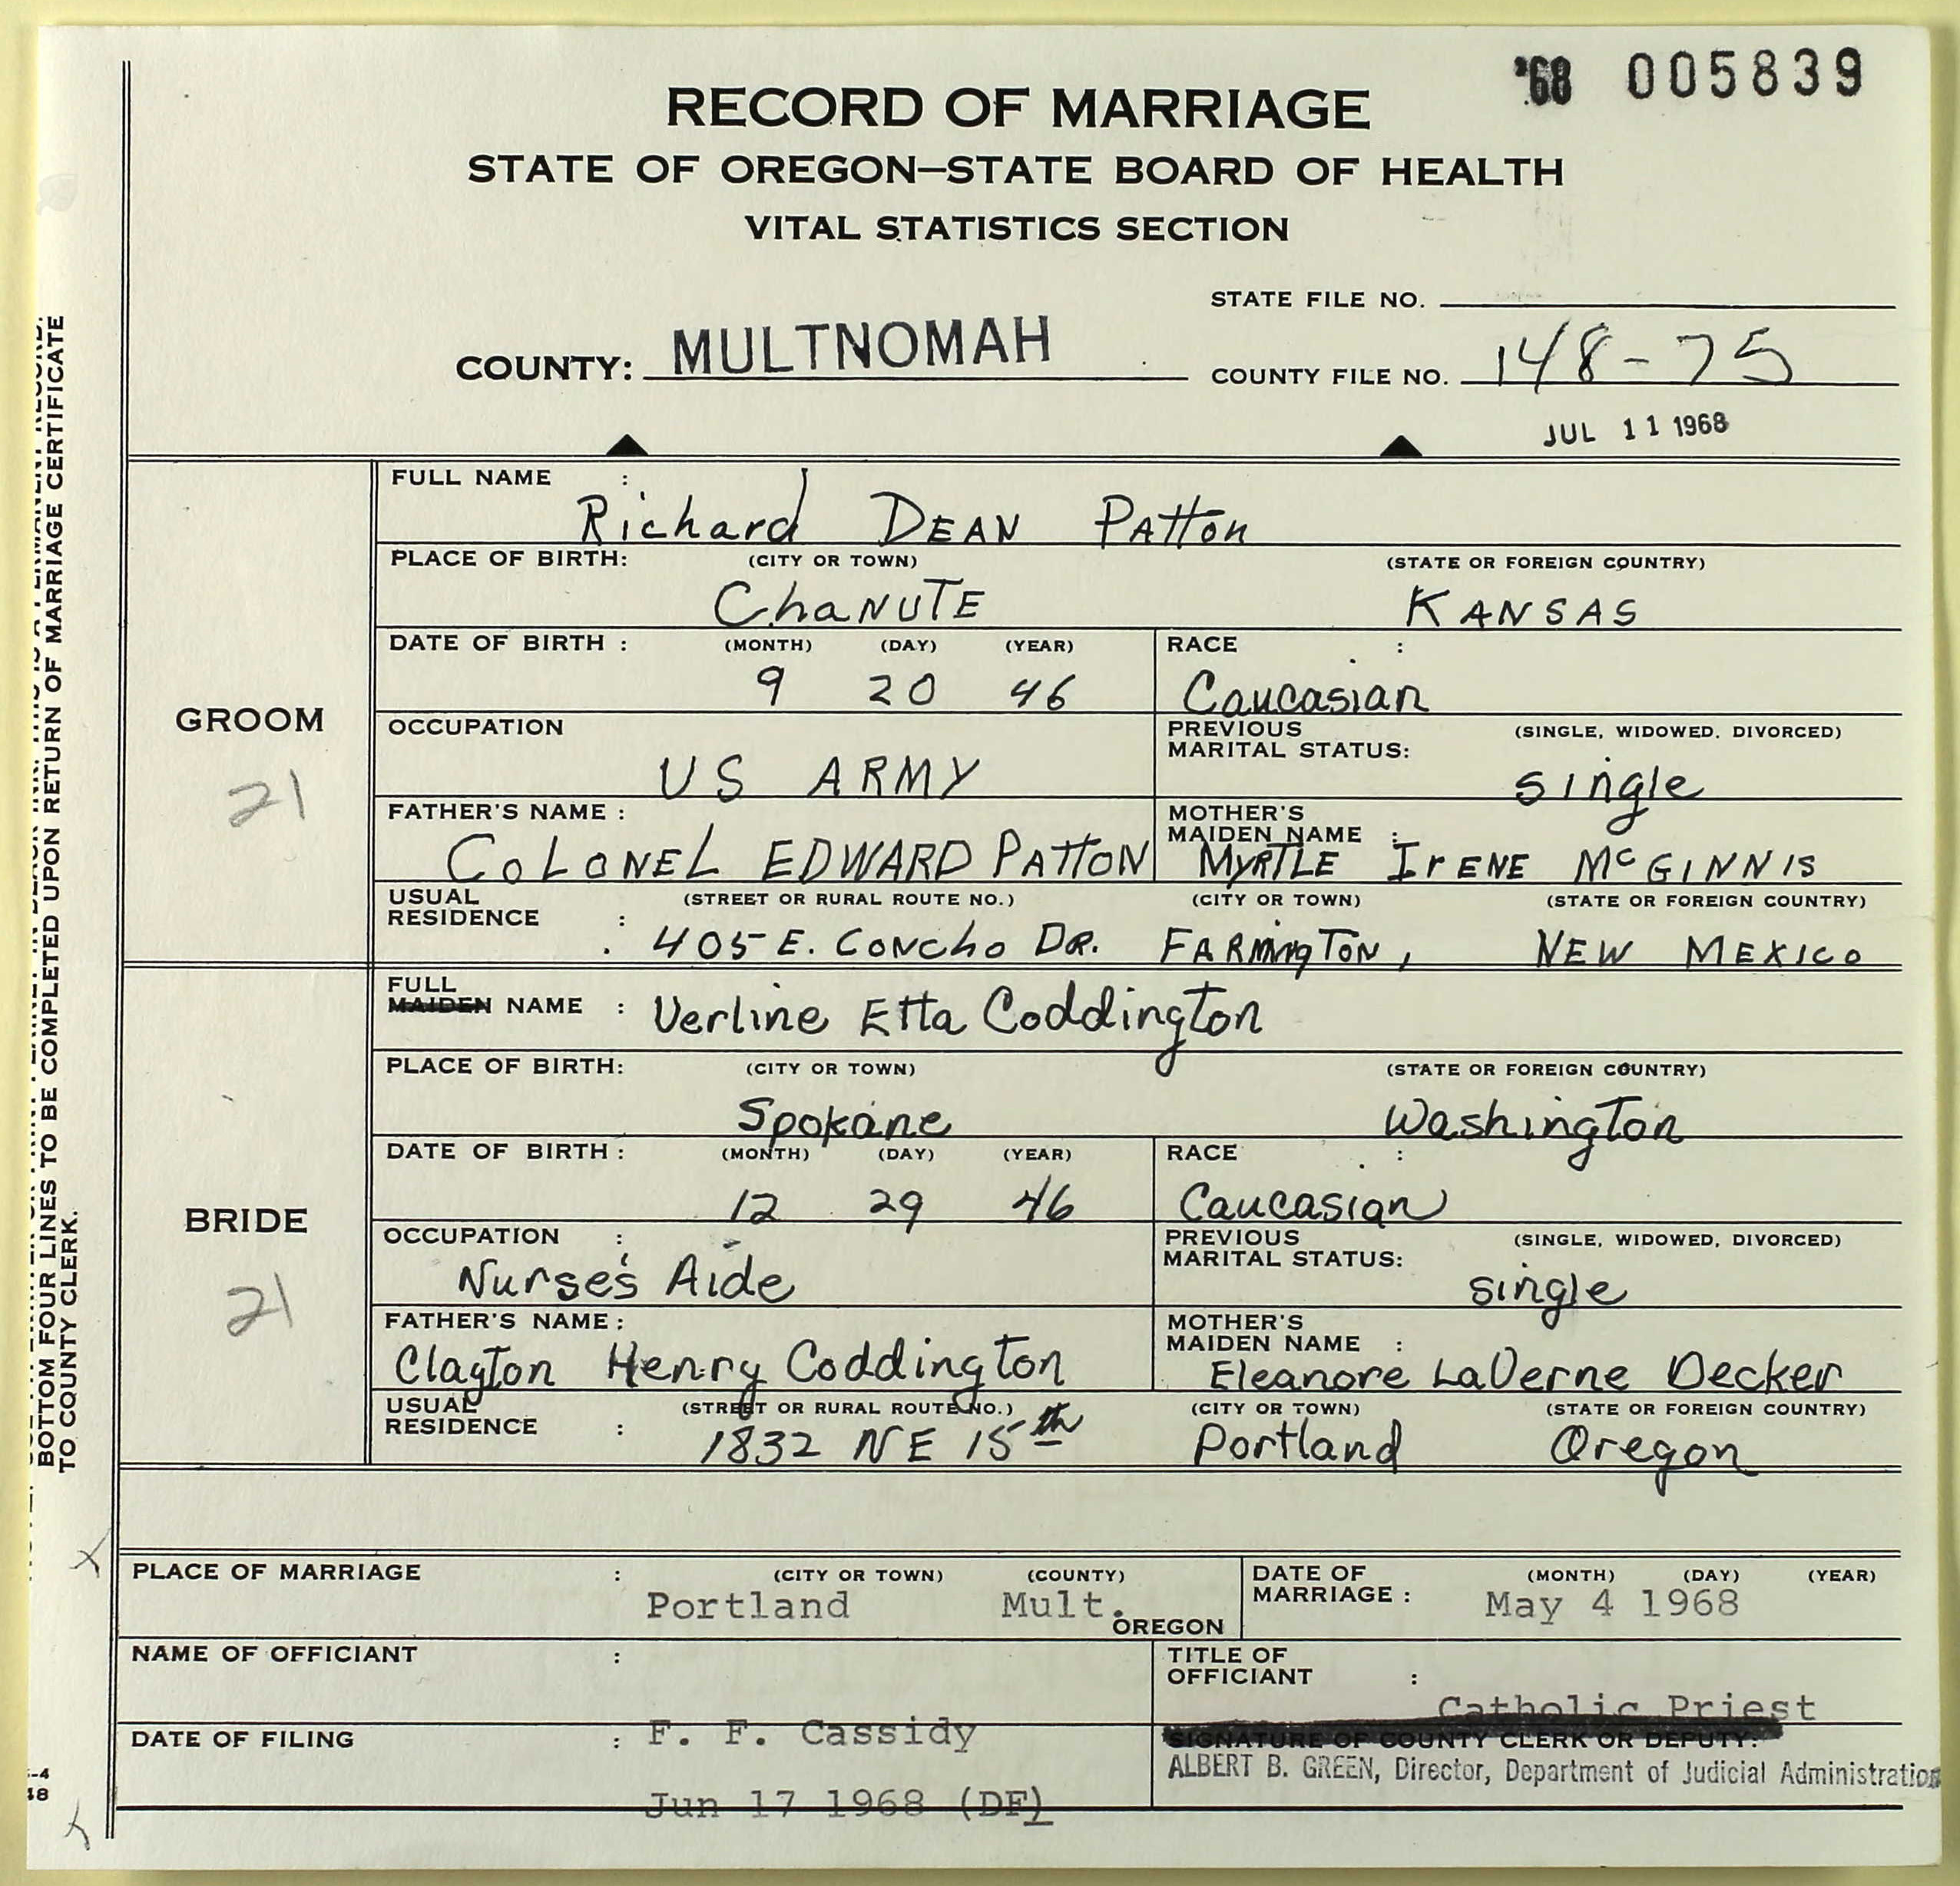 '68 005839
RECORD OF MARRIAGE
STATE OF OREGON—STATE BOARD OF HEALTH
VITAL STATISTICS SECTION
STATE FILE NO.
COUNTY: MULTNOMAH
COUNTY FILE NO. 148-75
JUL 11 1968
GROOM
21
FULL NAME :
Richard DEAN PATTON
PLACE OF BIRTH: (CITY OR TOWN) (STATE OR FOREIGN COUNTRY)
ChaNUTE KANSAS
DATE OF BIRTH : (MONTH) (DAY) (YEAR) RACE :
9 20 46 Caucasian
OCCUPATION PREVIOUS MARITAL STATUS: (SINGLE, WIDOWED, DIVORCED)
US ARMY single
FATHER'S NAME : MOTHER'S MAIDEN NAME :
COLONEL EDWARD PATTON MYRTLE IrENE McGINNIS
USUAL RESIDENCE : (STREET OR RURAL ROUTE NO.) (CITY OR TOWN) (STATE OR FOREIGN COUNTRY)
405 E. CONCho DR. FARMingTON, NEW MEXICO
BRIDE
21
FULL
MAIDEN NAME : Verline Etta Coddington
PLACE OF BIRTH: (CITY OR TOWN) (STATE OR FOREIGN COUNTRY)
Spokane Washington
DATE OF BIRTH : (MONTH) (DAY) (YEAR) RACE :
12 29 46 Caucasian
OCCUPATION : PREVIOUS MARITAL STATUS: (SINGLE, WIDOWED, DIVORCED)
Nurse's Aide single
FATHER'S NAME : MOTHER'S MAIDEN NAME :
Clayton Henry Coddington Eleanore LaVerne Decker
USUAL RESIDENCE : (STREET OR RURAL ROUTE NO.) (CITY OR TOWN) (STATE OR FOREIGN COUNTRY)
1832 NE 15th Portland Oregon
PLACE OF MARRIAGE : (CITY OR TOWN) (COUNTY) DATE OF MARRIAGE : (MONTH) (DAY) (YEAR)
Portland Mult. OREGON May 4 1968
NAME OF OFFICIANT : TITLE OF OFFICIANT :
F. F. Cassidy Catholic Priest
DATE OF FILING : SIGNATURE OF COUNTY CLERK OR DEPUTY:
Jun 17 1968 (DF) ALBERT B. GREEN, Director, Department of Judicial Administration
BOTTOM FOUR LINES TO BE COMPLETED UPON RETURN OF MARRIAGE CERTIFICATE
TO COUNTY CLERK.
-4
48